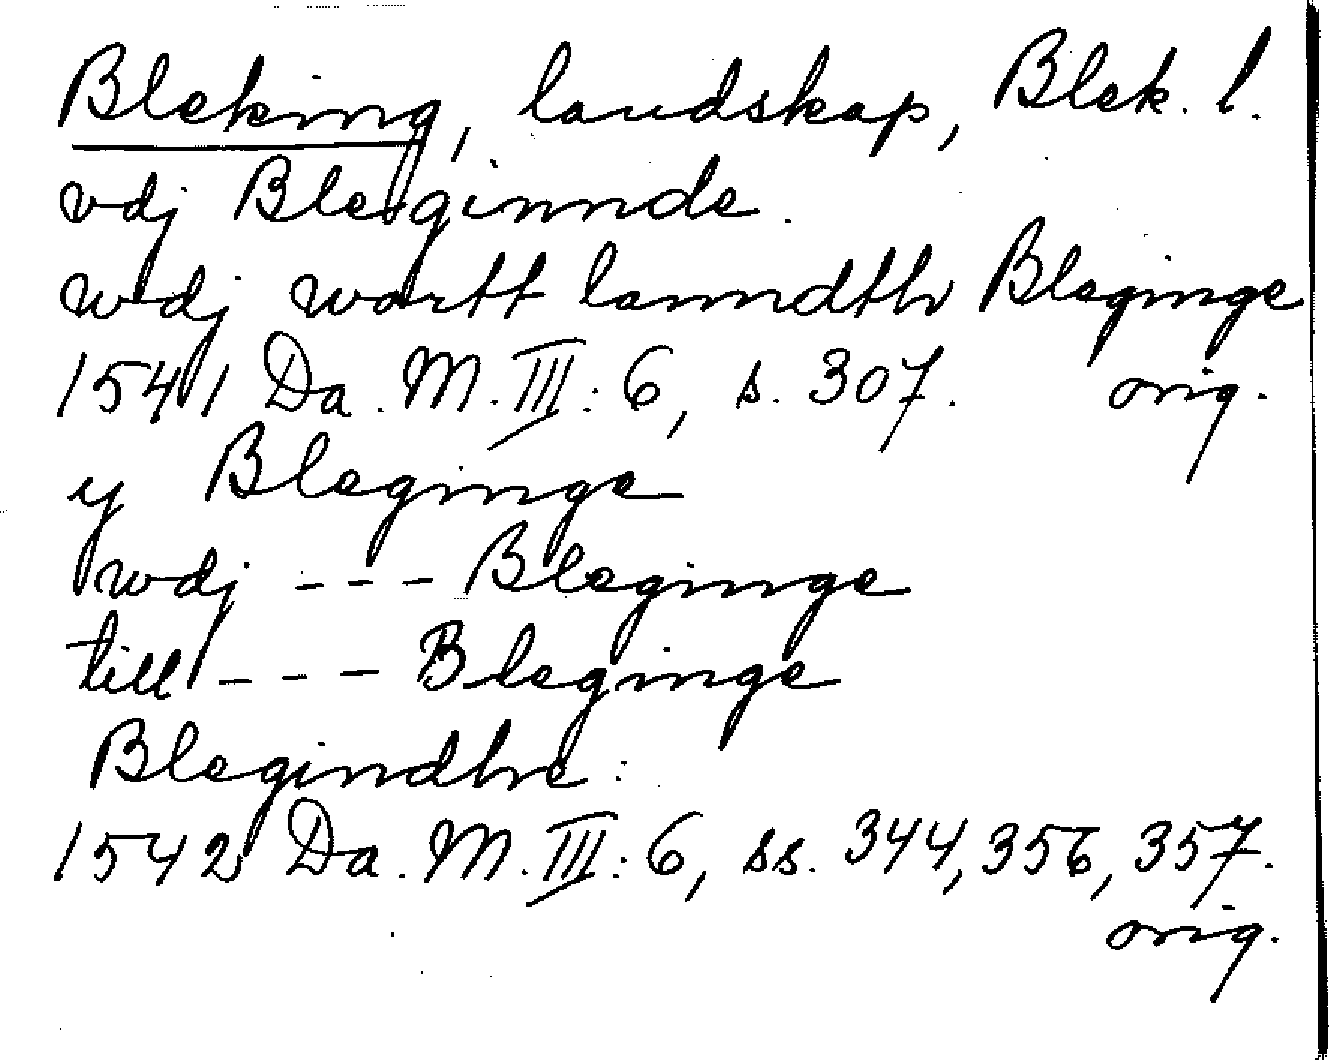 Bleking, landskap, Blek. l.
vdj Bleginnde.
wdj wortt lanndth Bleginge
1541 Da. M. III: 6, s. 307. orig.
y Bleginge
wdj - - - Bleginge
till - - - Bleginge
Blegindhe:
1542 Da. M. III: 6, ss. 344, 356, 357.
orig.